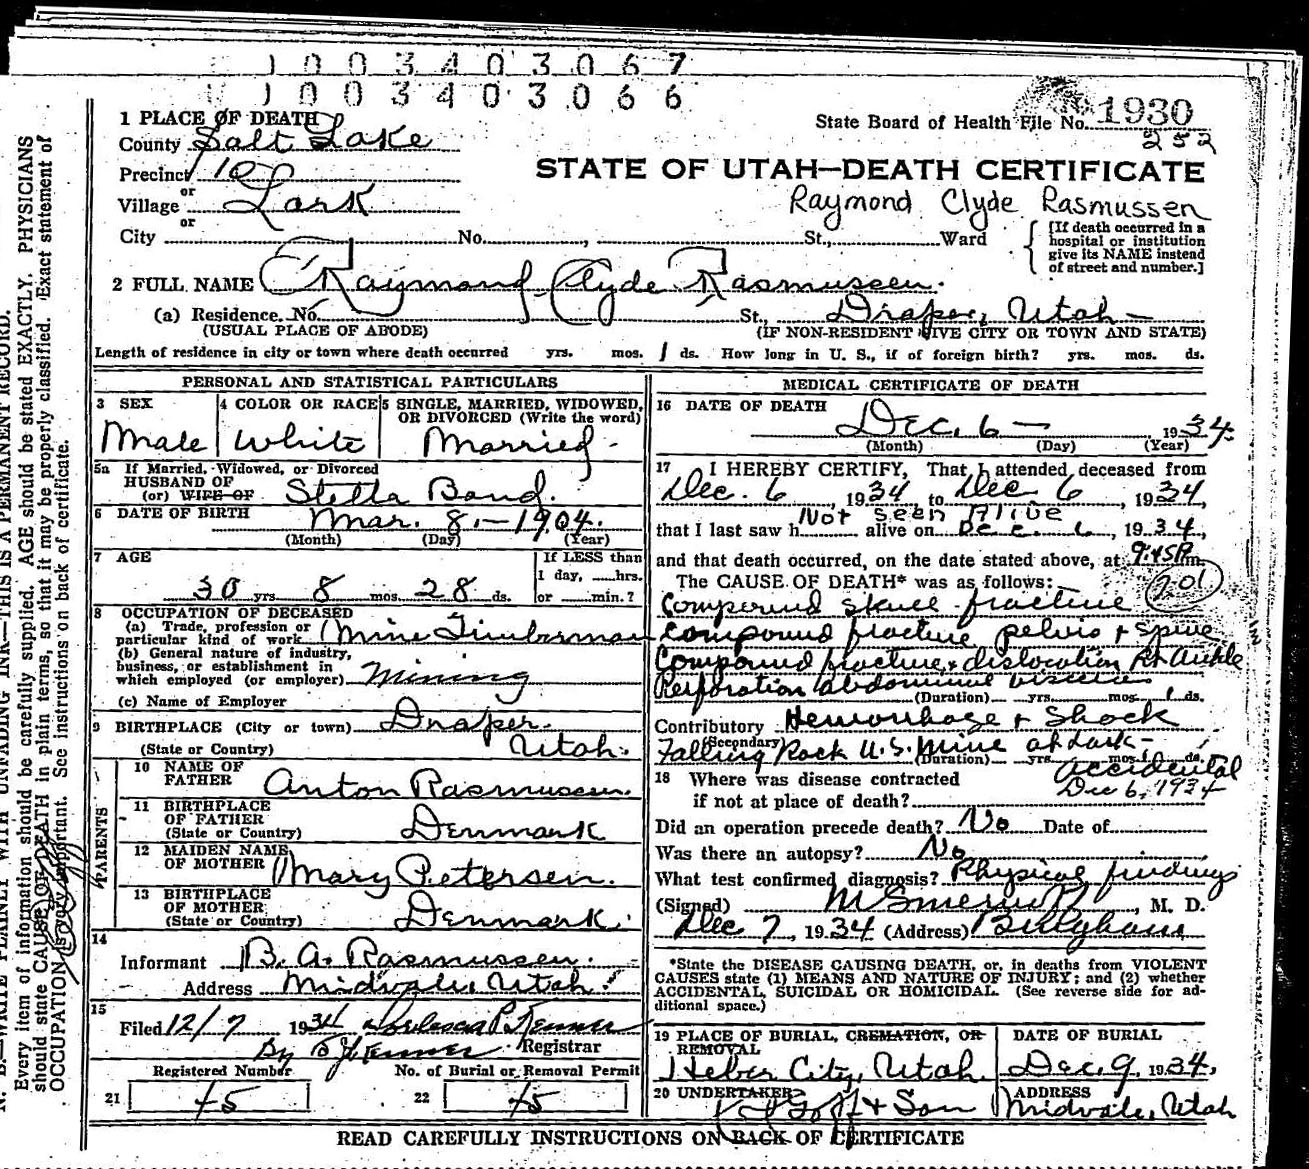 1 0 0 3 4 0 3 0 6 7
1 0 0 3 4 0 3 0 6 6
1 PLACE OF DEATH
County Salt Lake
Precinct 10
or
Village Lark
or
City No. , St., Ward
State Board of Health File No. 1930
252
STATE OF UTAH—DEATH CERTIFICATE
Raymond Clyde Rasmussen
[If death occurred in a
hospital or institution
give its NAME instead
of street and number.]
2 FULL NAME Raymond Clyde Rasmussen.
(a) Residence. No. St., Draper, Utah—
(USUAL PLACE OF ABODE) (IF NON-RESIDENT GIVE CITY OR TOWN AND STATE)
Length of residence in city or town where death occurred yrs. mos. 1 ds. How long in U. S., if of foreign birth? yrs. mos. ds.
PERSONAL AND STATISTICAL PARTICULARS
3 SEX 4 COLOR OR RACE 5 SINGLE, MARRIED, WIDOWED,
OR DIVORCED (Write the word)
Male White Married
5a If Married, Widowed, or Divorced
HUSBAND OF
(or) WIFE OF Stella Bond.
6 DATE OF BIRTH Mar. 8.—1904.
(Month) (Day) (Year)
7 AGE If LESS than
1 day, ....hrs.
30 yrs. 8 mos. 28 ds. or ....min.?
8 OCCUPATION OF DECEASED
(a) Trade, profession or
particular kind of work Mine Timberman
(b) General nature of industry,
business, or establishment in
which employed (or employer) Mining
(c) Name of Employer
9 BIRTHPLACE (City or town) Draper
(State or Country) Utah.
PARENTS
10 NAME OF
FATHER Anton Rasmussen.
11 BIRTHPLACE
OF FATHER
(State or Country) Denmark
12 MAIDEN NAME
OF MOTHER Mary Petersen.
13 BIRTHPLACE
OF MOTHER
(State or Country) Denmark.
14
Informant B. A. Rasmussen.
Address Midvale, Utah.
15
Filed 12/7 1934
By Registrar
Registered Number No. of Burial or Removal Permit
21 45 22 45
MEDICAL CERTIFICATE OF DEATH
16 DATE OF DEATH
Dec. 6— 1934.
(Month) (Day) (Year)
17 I HEREBY CERTIFY, That I attended deceased from
Dec. 6 1934 to Dec 6 1934,
Not seen Alive
that I last saw h alive on Dec. 6, 1934,
and that death occurred, on the date stated above, at 9:45P m.
The CAUSE OF DEATH* was as follows: 201
Compound skull fracture
Compound fracture pelvis + Spine
Compound fracture + dislocation Rt Ankle
Perforation abdominal viscera
(Duration) yrs. mos. 1 ds.
Contributory Hemorrhage + Shock
(Secondary)
Falling Rock U.S. Mine at Lark—
(Duration) yrs. mos. 1 ds.
Accidental
18 Where was disease contracted Dec 6, 1934
if not at place of death?
Did an operation precede death? No Date of
Was there an autopsy? No
What test confirmed diagnosis? Physical findings
(Signed) , M. D.
Dec 7, 1934 (Address)
*State the DISEASE CAUSING DEATH, or, in deaths from VIOLENT
CAUSES state (1) MEANS AND NATURE OF INJURY; and (2) whether
ACCIDENTAL, SUICIDAL OR HOMICIDAL. (See reverse side for ad-
ditional space.)
19 PLACE OF BURIAL, CREMATION, OR
REMOVAL DATE OF BURIAL
Heber City, Utah. Dec. 9, 1934.
20 UNDERTAKER ADDRESS
Goff + Son Midvale, Utah
READ CAREFULLY INSTRUCTIONS ON BACK OF CERTIFICATE
N. B.—WRITE PLAINLY WITH UNFADING INK—THIS IS A PERMANENT RECORD.
Every item of information should be carefully supplied. AGE should be stated EXACTLY. PHYSICIANS
should state CAUSE OF DEATH in plain terms, so that it may be properly classified. Exact statement of
OCCUPATION is very important. See instructions on back of certificate.